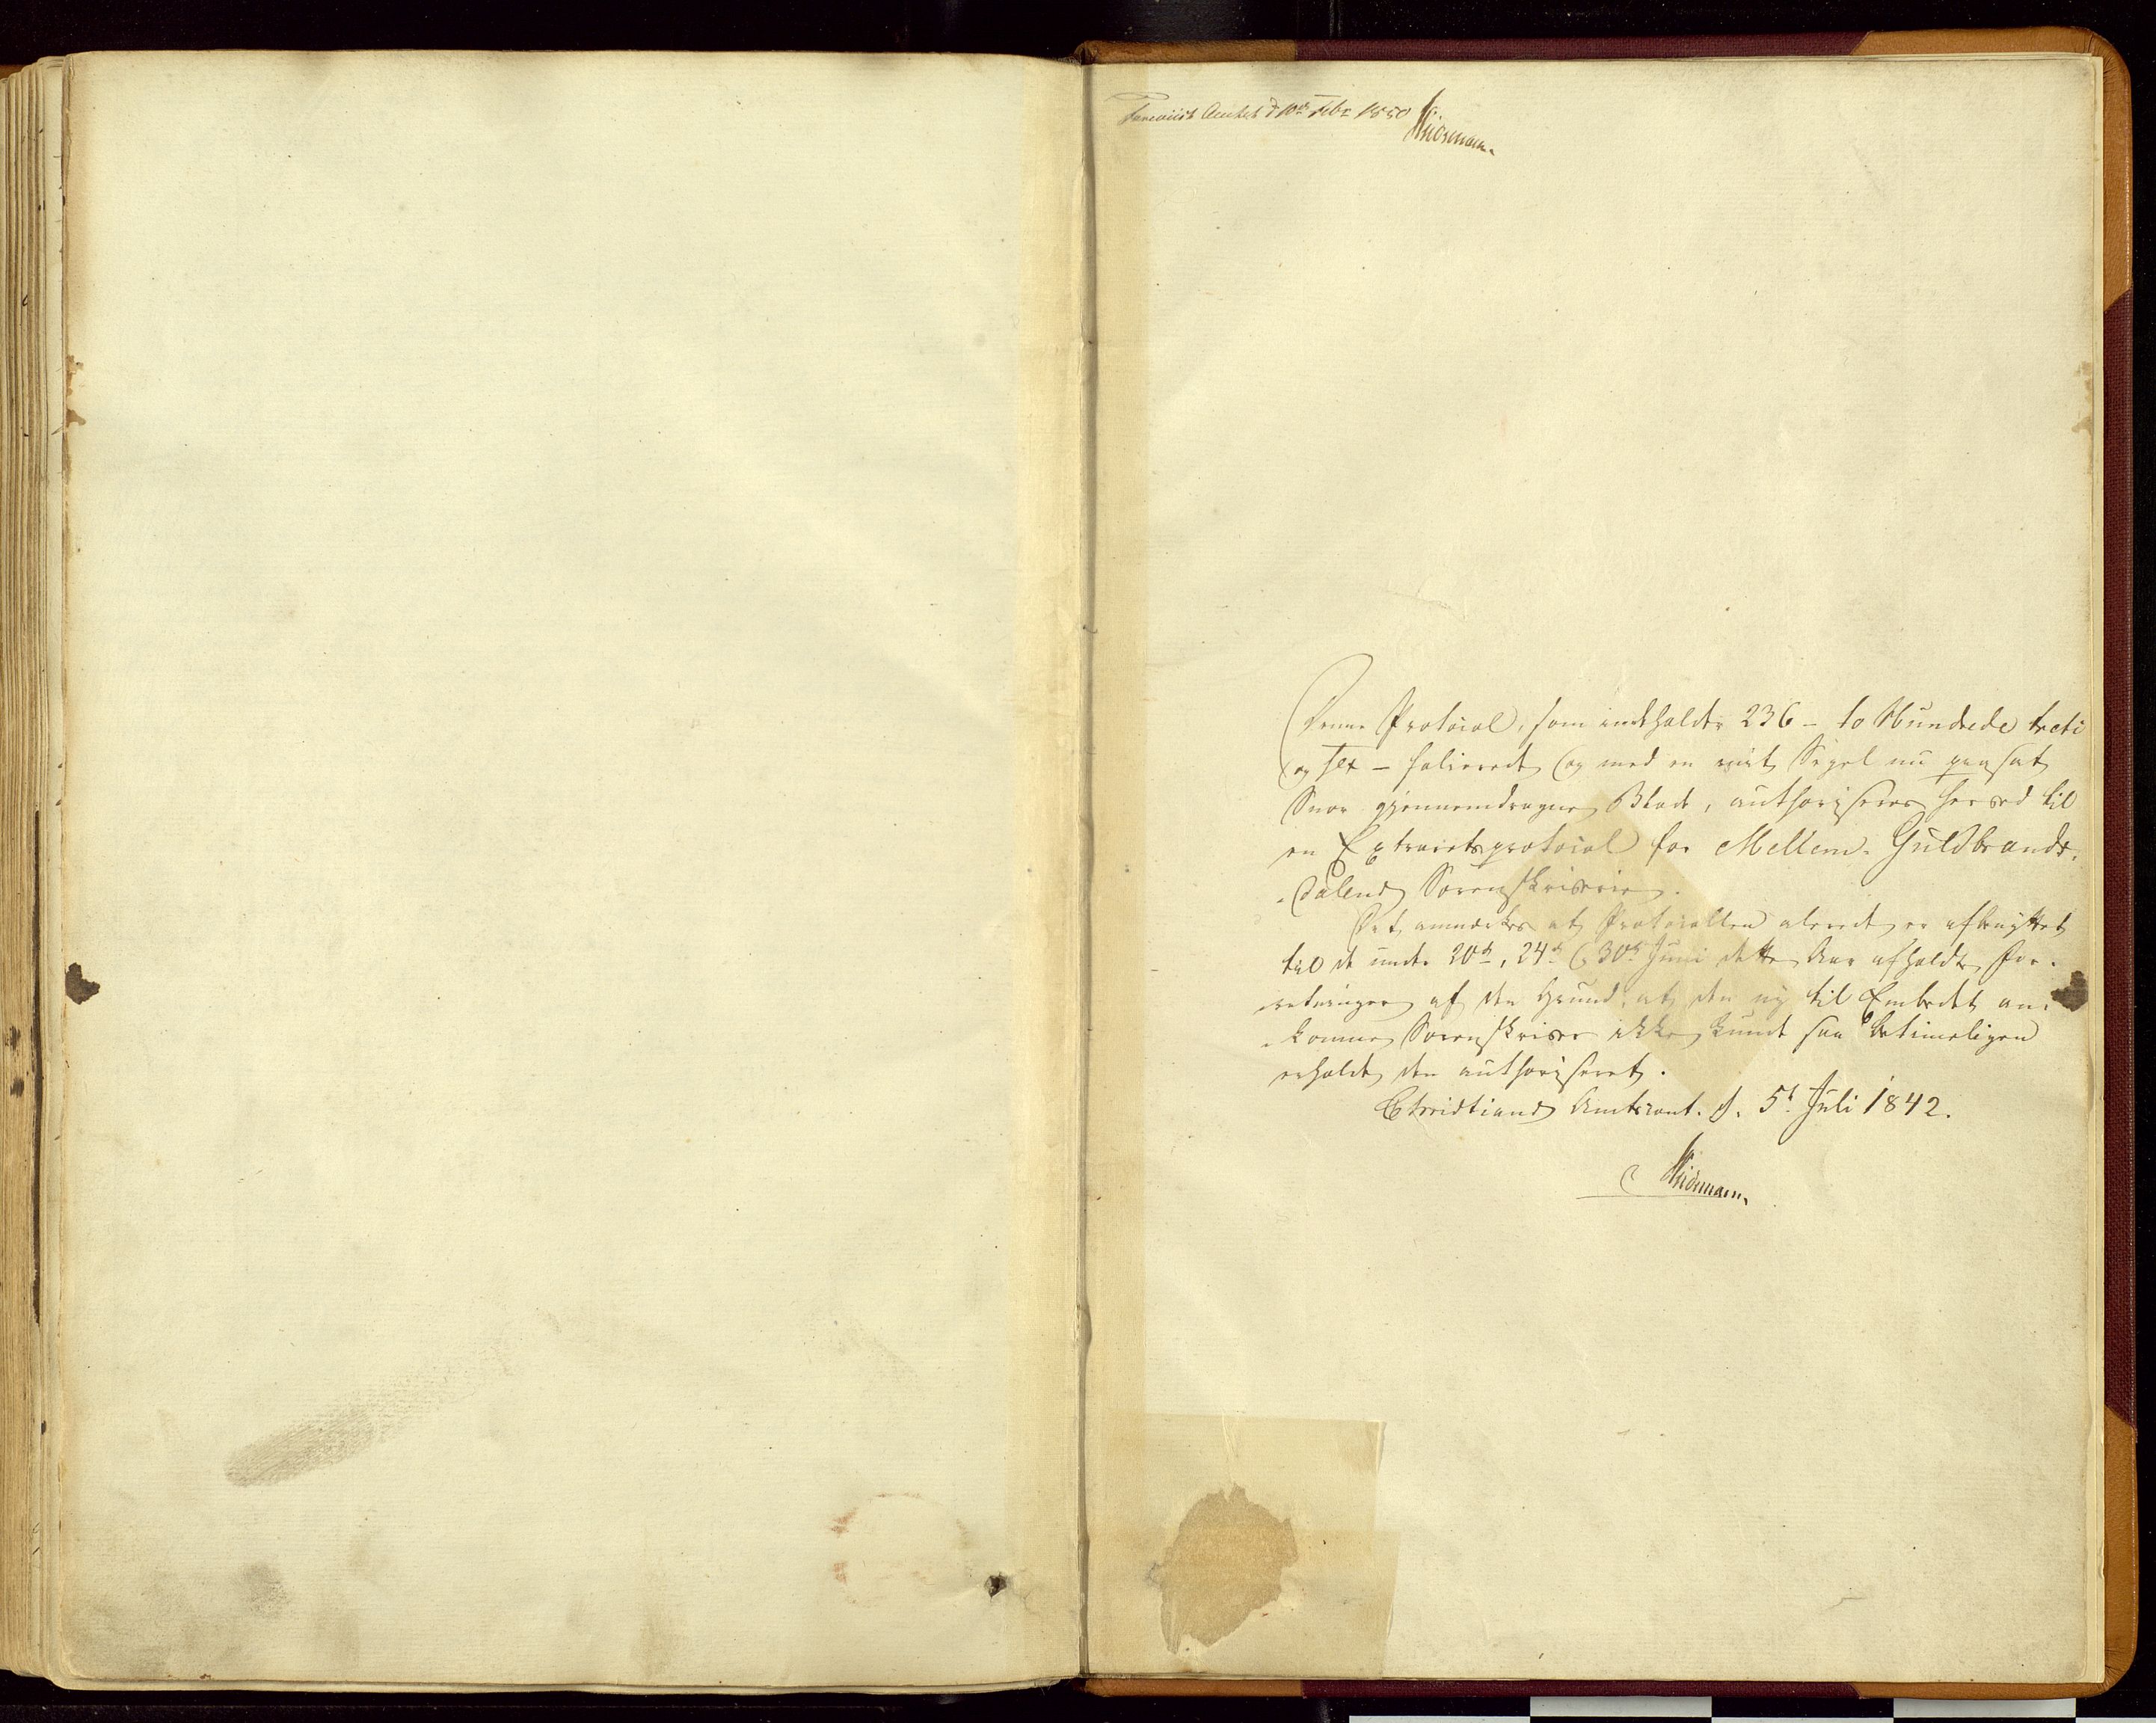 Foreviist Amtet d 10de Febr 1850 Hiormann.
Denne Protocol, som indeholder 236 – to Hundrede treti
og sex – folierede og med en mit Segel nu paasat
Snor gjennemdragne Blade, authoriseres herved til
en Extraretsprotocol for Mellem-Guldbrands-
-dalens Sorenskriverie.
Det anmærkes at Protocollen alerede er afbenyttet
til de under 20de, 24de & 30te Juni dette Aar afholdte For-
retninger af den Grund, at den ny til Embedet an-
-komne Sorenskriver ikke kunde saa betimeligen
erholde den authoriseret.
Christians Amtscont. d. 5t Juli 1842.